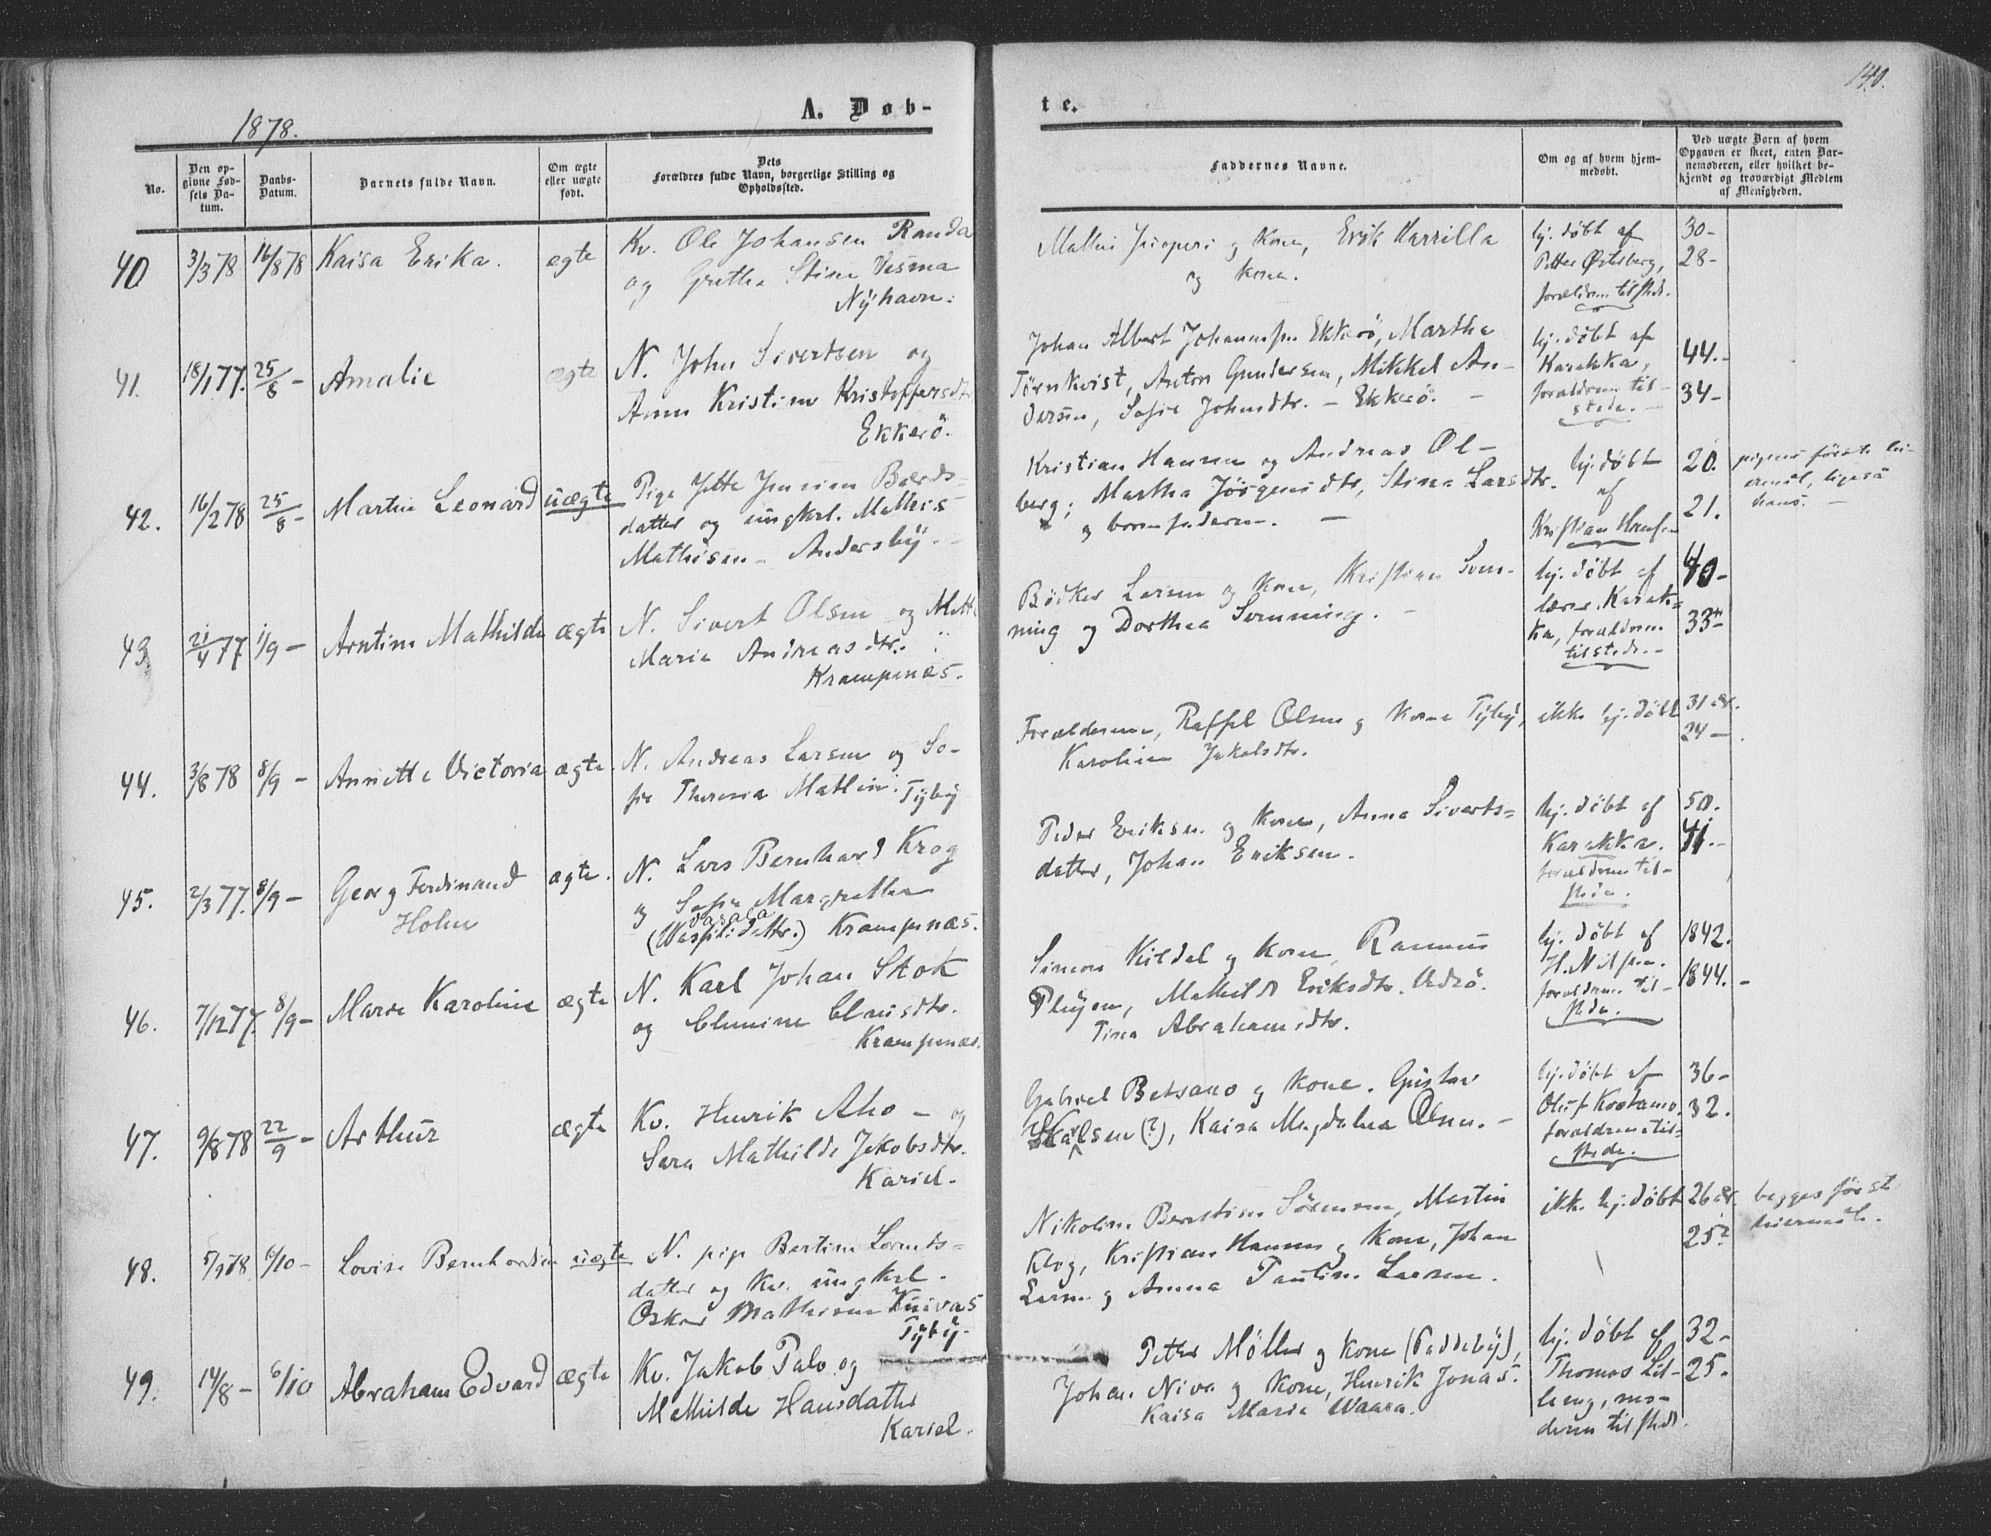 140.
1878.
A. Døb-
te.
No.
Den op-
givne Fød-
sels Da-
tum.
Daabs-
Datum.
Barnets fulde Navn.
Om ægte
eller uægte
født.
Dets
Forældres fulde Navn, borgerlige Stilling og
Opholdssted.
Faddernes Navne.
Om og af hvem hjem-
medøbt.
Ved uægte Børn af hvem
Opgaven er skeet, enten Bar-
nemoderen, eller hvilket be-
kjendt og troværdigt Medlem
af Menigheden.
40 3/3 78 16/8 78 Kaisa Erika. ægte
Kv. Ole Johansen Randa
og Gretha Stina Vesma
Nyhavn.
og Kone, Erik Harrilla
og Kone.
hj. døbt af
Petter Østerberg,
forældrene tilstede.
30-
28-
41. 18/1 77. 25/8 - Amalie ægte
N. John Sivertsen og
Anna Kristine Kristoffersdtr
Ekkerö.
Johan Albert Johannssen Ekkerö, Martha
Törnkvist, Anton Gundersen, Mikkel An-
dersen, Sofie Johnsdtr. - Ekkerö. -
hj. døbt af
Karakka,
forældrene til-
stede. -
44.-
34-
42. 16/2 78 25/8 - Martin Leonard uægte
Pige Jette Jensine Baards-
datter og ungkarl. Mathis
Mathisen - Andersby. -
Kristian Hansen og Andreas Ol-
berg; Martha Jörgensdtr, Stina Larsdtr.
og barnefaderen. -
hj. døbt
af
Kristian Hansen
20.
21.
pigens förste lei-
ermål, ligeså
hans. -
43. 21/4 77 1/9 - Arntine Mathilde ægte
N. Sivert Olsen og Mette
Maria Andreasdtr.
Krampenæs.
Bödker Larsen og Kone, Kristian Sven-
ning og Dorthea Svenning. -
hj. døbt af
lærer Karak-
ka, forældrene
tilstede. -
40-
33-
44. 3/8 78 8/9 - Annette Victoria ægte.
N. Andreas Larsen og So-
fie Theresia Matlin. Tyby
Forældrene, Raffel Olsen og Kone Tyby,
Karoline Jakobsdtr.
ikke hj. döbt
31 år.
24 -
45. 2/3 77. 8/9 - Georg Ferdinand
Holm
ægte.
N. Lars Bernhard Krog
og Sofie Margrethe
Vasala
Krampenæs.
Peder Eriksen og Kone, Anna Siverts-
datter, Johan Eriksen.
hj. døbt af
Karakka.
forældrene til-
stede.
50.
41.-
46. 7/12 77. 8/9 - Marie Karoline ægte
N. Karl Johan Stok
og Clemine Clausdtr.
Krampenæs.
Simon Kildal og Kone, Rasmus
Mathilde Eriksdtr. Vadsö.
Tina Abrahamsdtr.
hj. døbt af
H. Nilsen.
forældrene til-
stede.
1842.
1844. -
47. 9/8 78 22/9 - Arthur ægte
Kv. Henrik Aho - og
Sara Mathilde Jakobsdtr.
Kariel.
Gabriel Betsano og Kone. Gustav
Karlsen (?), Kaisa Magdalena Olsen. -
hj. døbt af
Oluf Kostamo.
forældrene til-
stede.
36-
32.
48. 5/9 78 6/10 - Lovise Bernhardine uægte
N. pige Bertine Lorents-
datter og Kv. ungkarl.
Oskar Mathisen Kuivas
Tyby.
Nikoline Berntine Sörensen, Martin
Klog, Kristian Hansen og Kone, Johan
Larsen og Anna Pauline Larsen.
ikke hj. döbt
26 år.
25?
begges först
leiermål.
49. 14/8 - 6/10 Abraham Edvard ægte
Kv. Jakob Palo og
Mathilde Hansdatter
Kariel.
Petter Møller og Kone (Paddeby),
Johan Niva og Kone, Henrik Jonas.
Kaisa Maria Waara.
hj. døbt af
Thomas Lil-
leng, mo-
deren tilstede.
32-
25.